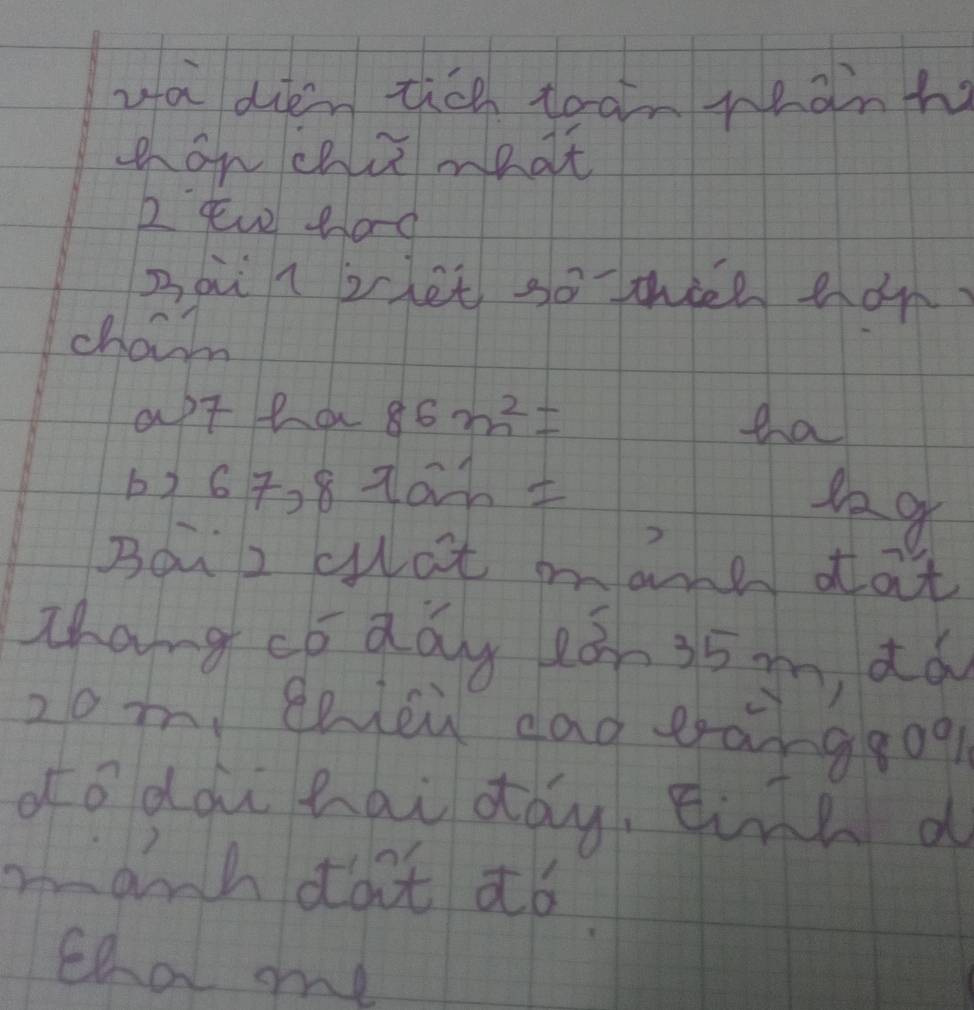 và diện tích toàn phần
hộp chữ nhật
2 tự học
Bài 1 Viết số thích hợp
chấm
a) 7 ha 86 m² = ha
b) 67,8 tấn = kg
Bài 2 Một mảnh đất
thang có đáy lớn 35 m, đá
20 m, chiều cao bằng 80%
độ dài hai đáy. Tính d
mảnh đất đó
Cha mẹ